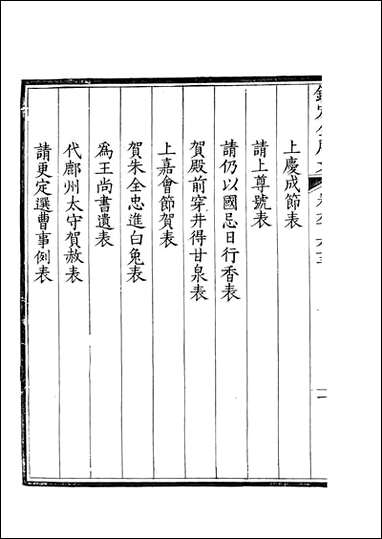 上慶成節表
請上尊號表
請仍以國忌日行香表
賀殿前穿井得甘泉表
上嘉會節賀表
賀朱全忠進白兔表
為王尚書遺表
代鄜州太守賀赦表
請更定選曹事例表